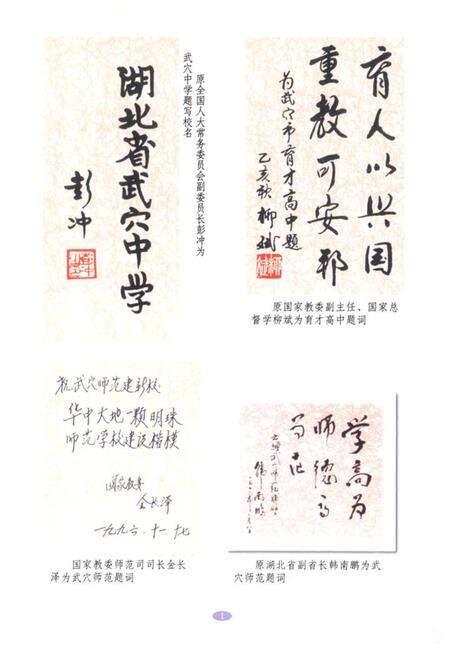 湖北省武穴中学
彭冲
原全国人大常务委员会副委员长彭冲为
武穴中学题写校名
育人以兴国
重教可安邦
为武穴市育才高中题
乙亥秋柳斌
原国家教委副主任、国家总
督学柳斌为育才高中题词
祝武穴师范建新校
华中大地一颗明珠
师范学校建设楷模
国家教委
金长泽
一九九六.十一.十七
国家教委师范司司长金长
泽为武穴师范题词
学高为
师德高
为范
韩南鹏
原湖北省副省长韩南鹏为武
穴师范题词
1